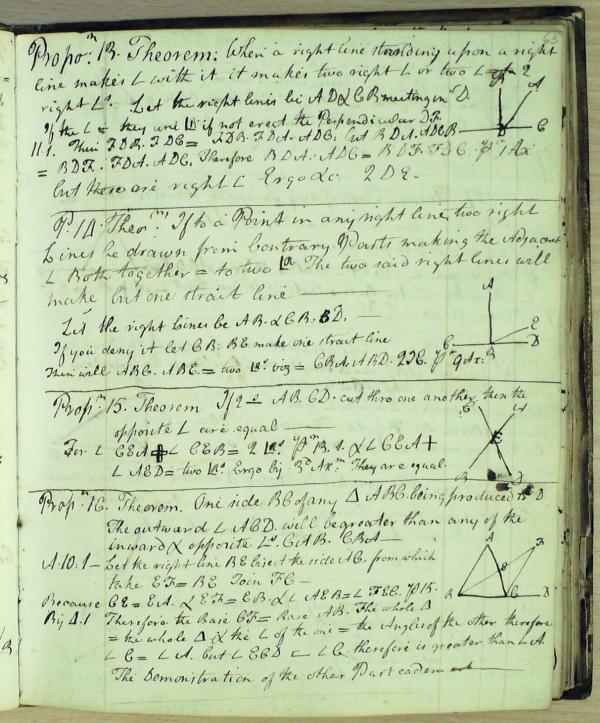 63
Propo.n 13. Theorem: When a right line standing upon a right
line makes L with it it makes two right L or two L = 2
right Ls. Let the right lines be AD & CB meeting in D.
If the L = they are if not erect the Perpendicular DF.
11.1. Then FDB. FDC = FDB. FDA. ADC. but BDA. ADC
= BDF. FDA. ADC, Therefore BDA. ADC = BDF. FDC. Pr 1 Ax
but these are right L Ergo &c. QDE.
P. 14. Theorm. If to a Point in any right line, two right
Lines be drawn from Contrary Parts making the Adjacent
L Both together = to two The two said right lines will
make but one strait line
Let the right Lines be AB. & CB. BD.
If you deny it let CB: BE make one strait line
Then will ABC. ABE. = two viz = CBA. ABD. Pr 9 Ax:
Propn 15. Theorem If 2 AB. CD. cut thro one another, then the
opposite L are equal
For L CEA + L CEB = 2 Pr 13. 1. & L CEA +
L AED = two Ergo by 3d Axm. They are equal.
Propn 16. Theorem. One side BC of any Δ ABC. being produced to D
The outward L ACD. will be greater than any of the
inward & opposite Ls. CAB. CBA
A. 10: 1 — Let the right line BE bisect the side AC. from which
take EF = BE Join FC —
Because CE = EA. & EF = EB. & L AEB = L FEC. Pr 15.
By 4. 1 Therefore the Base CF = Base AB. The whole Δ
= the whole Δ & the L of the one = the Angles of the other therefore
L C = L A. but L ECD L C. therefore is greater than L A.
The Demonstration of the other Part
A
B
D
C
A
E
C
B
D
C
A
E
B
D
A
F
E
B
C
D